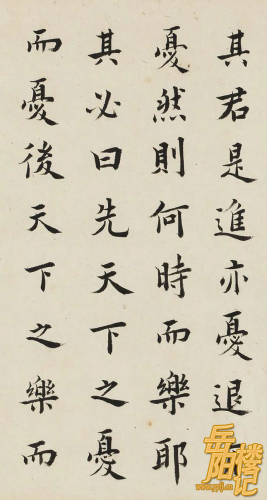 其君是進亦憂退
憂然則何時而樂耶
其必曰先天下之憂
而憂後天下之樂而
岳阳楼记